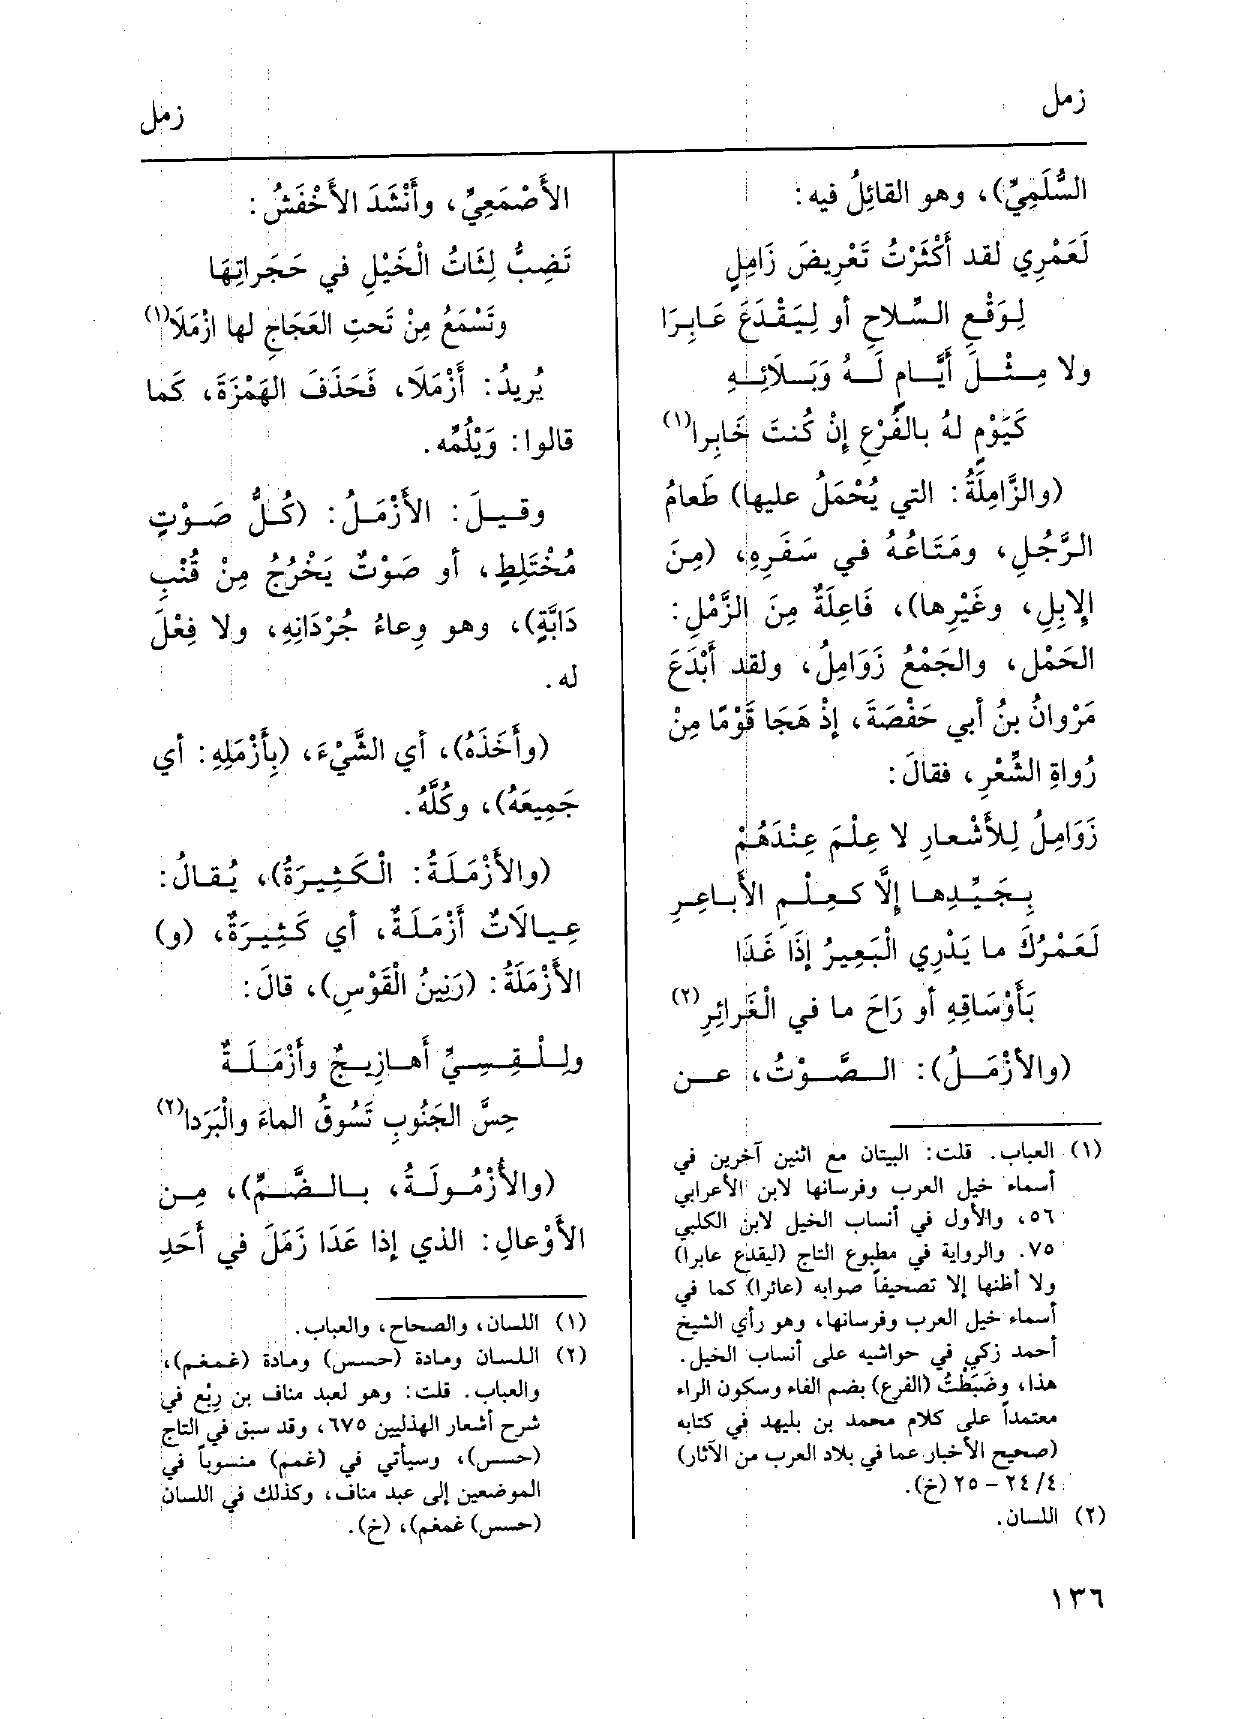 زمل
زمل
السُّلَمِيِّ)، وهو القائِلُ فيه:
لَعَمْرِي لقد أَكْثَرْتُ تَعْرِيضَ زَامِلٍ
لِوَقْعِ السِّلاحِ أو لِيَقْدَعَ عَابِرَا
ولا مِثْلَ أَيَّامٍ لَهُ وَبَلَائِهِ
كَيَوْمٍ لهُ بالفُرْعِ إِنْ كُنتَ خَابِرا(١)
(والزَّامِلَةُ: التي يُحْمَلُ عليها) طَعامُ
الرَّجُلِ، ومَتَاعُهُ في سَفَرِهِ، (مِنَ
الإِبِلِ، وغَيْرِها)، فَاعِلَةٌ مِنَ الزَّمْلِ:
الحَمْلِ، والجَمْعُ زَوَامِلُ، ولقد أَبْدَعَ
مَرْوانُ بنُ أبي حَفْصَةَ، إِذْ هَجَا قَوْمًا مِنْ
رُواةِ الشِّعْرِ، فقالَ:
زَوَامِلُ لِلأَشْعارِ لا عِلْمَ عِنْدَهُمْ
بِجَيِّدِها إِلَّا كعِلْمِ الأَباعِرِ
لَعَمْرُكَ ما يَدْرِي الْبَعِيرُ إِذَا غَدَا
بَأَوْسَاقِهِ أو رَاحَ ما في الْغَرائِرِ(٢)
(والأَزْمَلُ): الصَّوْتُ، عن
(١) العباب. قلت: البيتان مع اثنين آخرين في
أسماء خيل العرب وفرسانها لابن الأعرابي
٥٦، والأول في أنساب الخيل لابن الكلبي
٧٥. والرواية في مطبوع التاج (ليقدع عابرا)
ولا أظنها إلا تصحيفاً صوابه (عائرا) كما في
أسماء خيل العرب وفرسانها، وهو رأي الشيخ
أحمد زكي في حواشيه على أنساب الخيل.
هذا، وضَبَطْتُ (الفرع) بضم الفاء وسكون الراء
معتمداً على كلام محمد بن بليهد في كتابه
(صحيح الأخبار عما في بلاد العرب من الآثار)
٤/ ٢٤ - ٢٥ (خ).
(٢) اللسان.
الأَصْمَعِيِّ، وأَنْشَدَ الأَخْفَشُ:
تَضِبُّ لِثَاتُ الْخَيْلِ في حَجَراتِهَا
وتَسْمَعُ مِنْ تَحتِ العَجَاجِ لها ازْمَلَا(١)
يُريدُ: أَزْمَلَا، فَحَذَفَ الهَمْزَةَ، كَما
قالوا: وَيْلُمِّه.
وقيلَ: الأَزْمَلُ: (كُلُّ صَوْتٍ
مُخْتَلِطٍ، أو صَوْتٌ يَخْرُجُ مِنْ قُنْبِ
دَابَّةٍ)، وهو وِعاءُ جُرْدَانِهِ، ولا فِعْلَ
له.
(وأَخَذَهُ)، أي الشَّيْءَ، (بِأَزْمَلِهِ: أي
جَمِيعَهُ)، وكُلَّهُ.
(والأَزْمَلَةُ: الْكَثِيرَةُ)، يُقالُ:
عِيالَاتٌ أَزْمَلَةٌ، أي كَثِيرَةٌ، (و)
الأَزْمَلَةُ: (رَنِينُ الْقَوْسِ)، قالَ:
ولِلْقِسِيِّ أَهازِيجٌ وأَزْمَلَةٌ
حِسَّ الجَنُوبِ تَسُوقُ الماءَ والْبَرَدا(٢)
(والأُزْمُولَةُ، بالضَّمِّ)، مِن
الأَوْعالِ: الذي إذا عَدَا زَمَلَ في أَحَدِ
(١) اللسان، والصحاح، والعباب.
(٢) اللسان ومادة (حسس) ومادة (غمغم)،
والعباب. قلت: وهو لعبد مناف بن رِبْع في
شرح أشعار الهذليين ٦٧٥، وقد سبق في التاج
(حسس)، وسيأتي في (غمم) منسوباً في
الموضعين إلى عبد مناف، وكذلك في اللسان
(حسس) غمغم)، (خ).
١٣٦